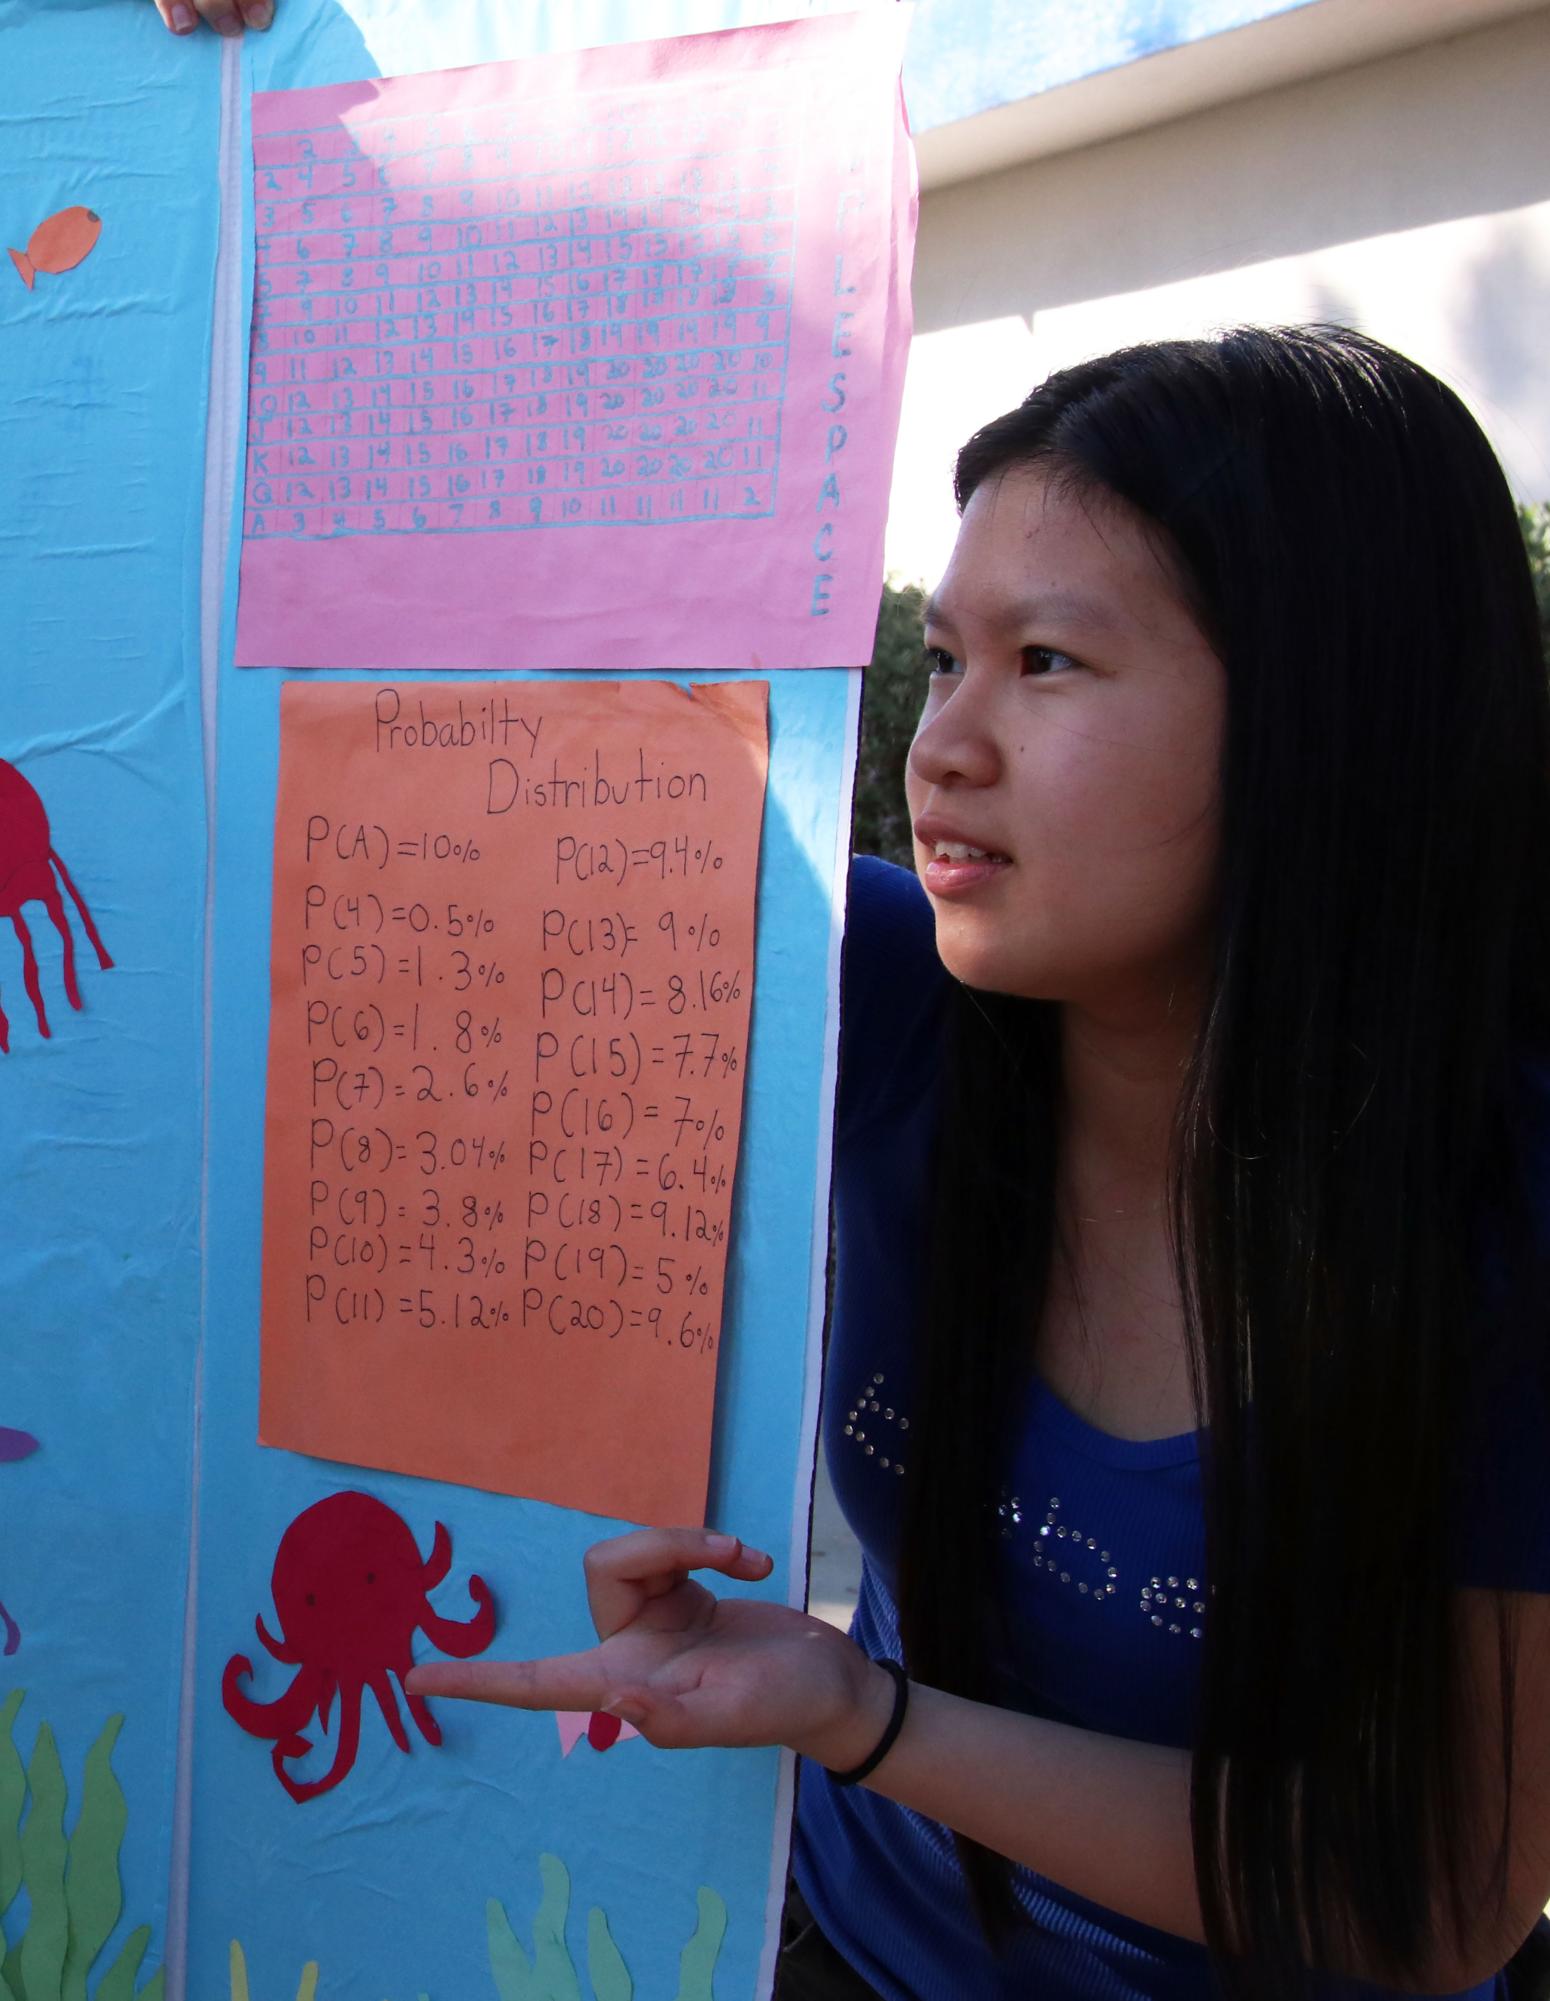 2 4 5 6
3 5 6 7 8 9 10 11 12 13
6 7 8 9 10 11 12 13 14 15 15
7 8 9 10 11 12 13 14 15 16 17 17 17
9 10 11 12 13 14 15 16 17 18
10 11 12 13 14 15 16 17 18 19 19 19 19 9
9 11 12 13 14 15 16 17 18 19 20 20 20 20 10
12 13 14 15 16 17 18 19 20 20 20 20 11
J 12 13 14 15 16 17 18 19 20 20 20 20 11
K 12 13 14 15 16 17 18 19 20 20 20 20 11
Q 12 13 14 15 16 17 18 19 20 20 20 20 11
A 3 4 5 6 7 8 9 10 11 11 11 11 2
SPACE
Probabilty
Distribution
P(A)=10%
P(4)=0.5%
P(5)=1.3%
P(6)=1.8%
P(7)=2.6%
P(8)=3.04%
P(9)=3.8%
P(10)=4.3%
P(11)=5.12%
P(12)=9.4%
P(13)=9%
P(14)=8.16%
P(15)=7.7%
P(16)=7%
P(17)=6.4%
P(18)=9.12%
P(19)=5%
P(20)=9.6%